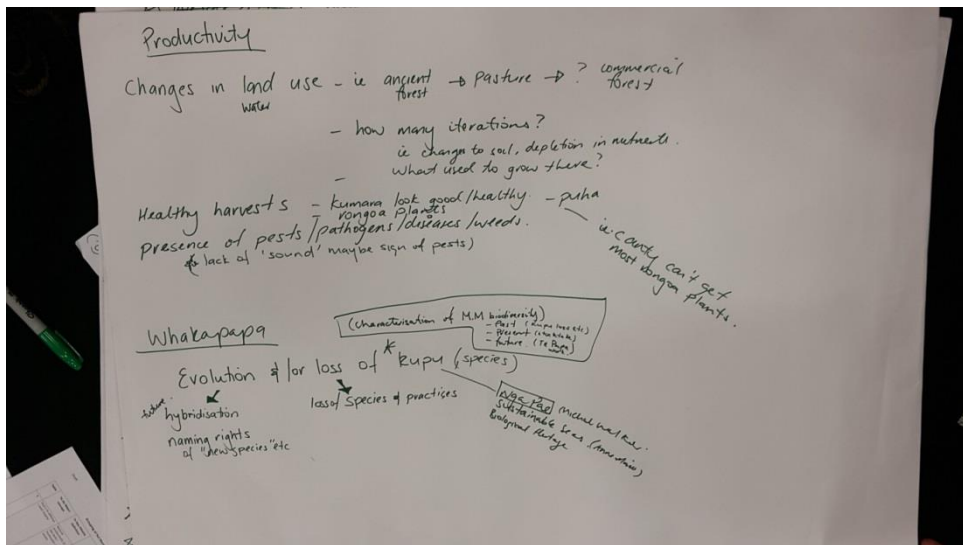 Productivity
Changes in land use - ie ancient forest → pasture → ? commercial forest
water
- how many iterations?
ie changes to soil, depletion in nutrients.
What used to grow there?
-
Healthy harvests - kumara look good/healthy. - puha
- rongoa plants
presence of pests/pathogens/diseases/weeds.
lack of 'sound' maybe sign of pests)
can't get
most rongoa plants.
Whakapapa
(characterisation of M.M biodiversity)
- Past
- Present
- future. (Te Papa work)
Evolution &/or loss of * kupu (species)
future.
hybridisation
loss of species & practices
naming rights
of "new species" etc
Sustainable Seas
Biological Heritage